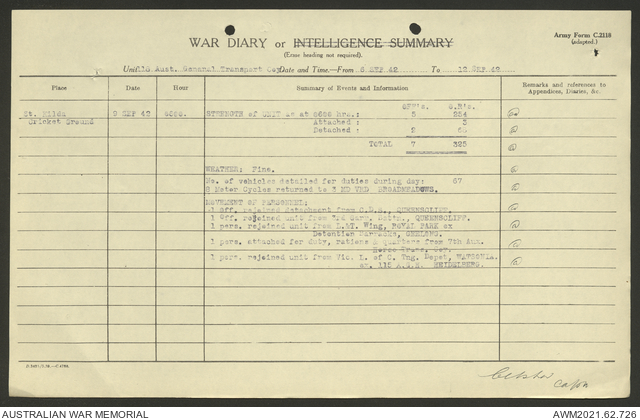 WAR DIARY or INTELLIGENCE SUMMARY
Army Form C.2118
(adapted.)
(Erase heading not required).
Unit 18 Aust. General Transport Coy Date and Time.—From 6 SEP 42 To 12 SEP 42
Place Date Hour Summary of Events and Information Remarks and references to Appendices, Diaries, &c.
OFF's. O.R's.
St. Kilda 9 SEP 42 STRENGTH of UNIT as at hrs.: 5 254
Cricket Ground Attached : 3
Detached : 2 68
TOTAL 7 325
WEATHER: Fine.
No. of vehicles detailed for duties during day: 67
8 Motor Cycles returned to 3 MD VRD BROADMEADOWS.
MOVEMENT OF PERSONNEL:
1 off. rejoined detachment from C.D.S., QUEENSCLIFF.
1 Off. rejoined unit from QUEENSCLIFF.
1 pers. rejoined unit from Wing, ROYAL PARK ex
Detention Barracks, GEELONG.
1 pers. attached for duty, rations & quarters from 7th Aus.
1 pers. rejoined unit from Vic. L. of C. Tng. Depot, WATSONIA.
ex. 115 A.G.H. HEIDELBERG.
Capt
AUSTRALIAN WAR MEMORIAL
AWM2021.62.726